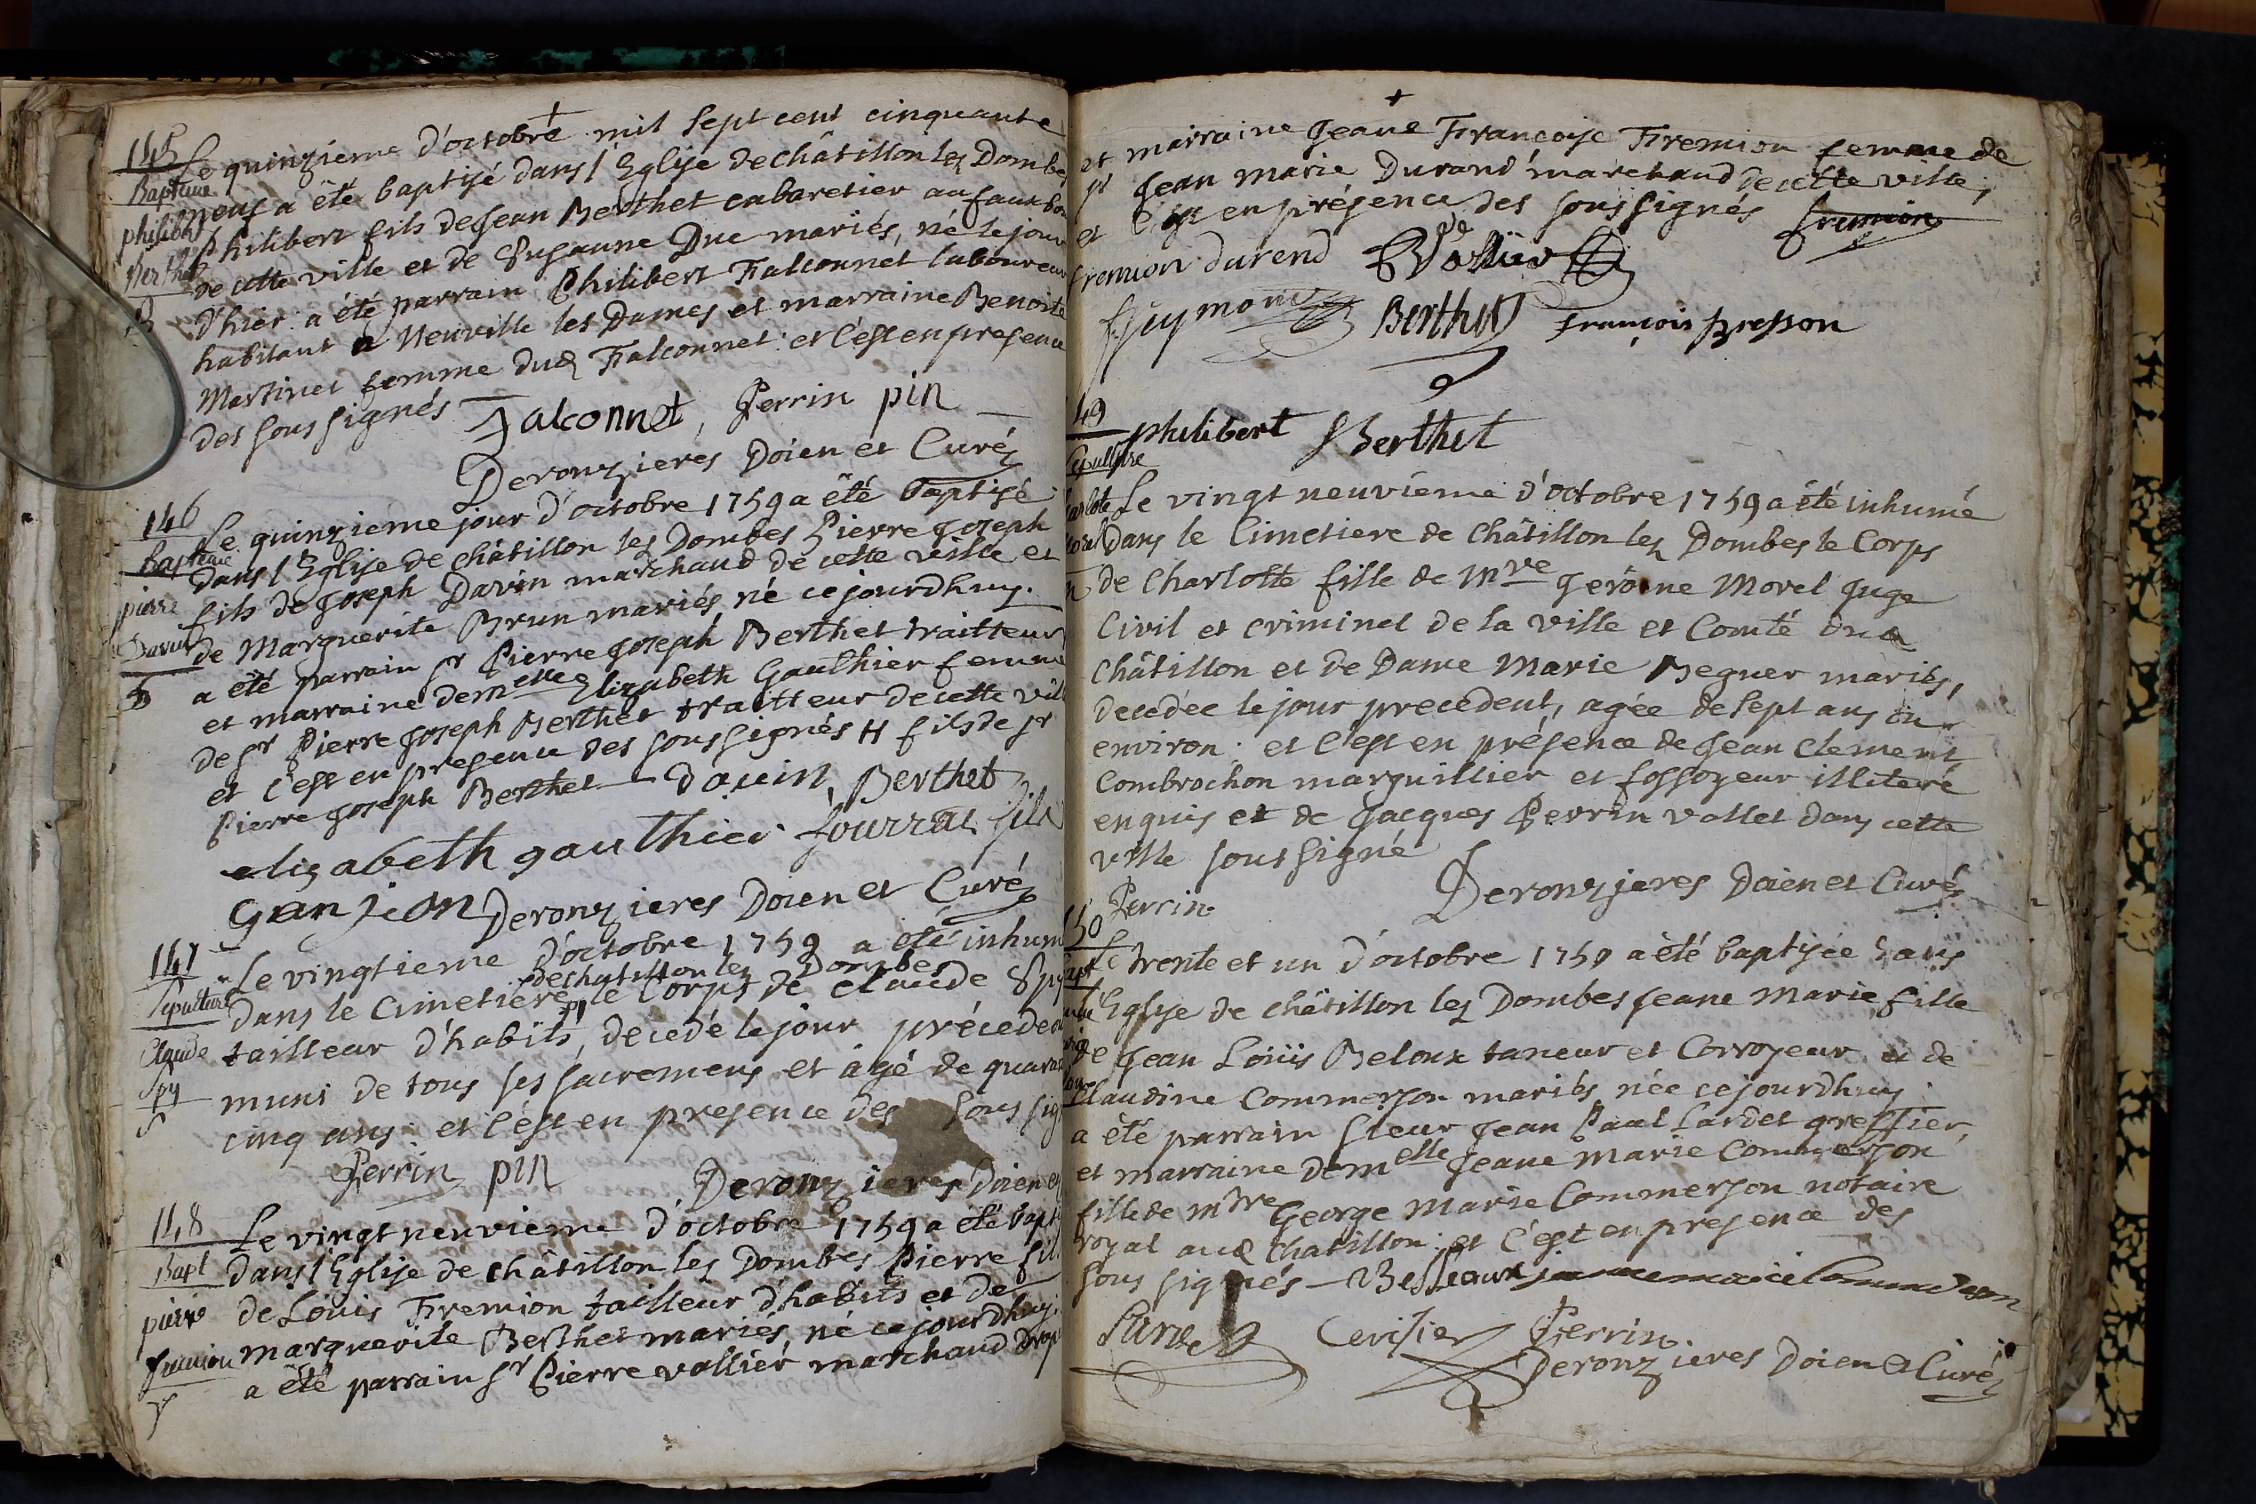 145
Baptême
philibert
Berthet
B
Le quinzieme d'octobre mil sept cent cinquante
neuf a été baptisé dans l'Eglise de châtillon lez Dombes
Philibert fils de Jean Berthet cabaretier au faux bo
de cette ville et de Susanne Duc mariés, né le jour
d'hier: a été parrain Philibert Falconnet laboureur
habitant a Neuville les Dames et marraine Benoite
Martinet femme dud Falconnet: et c'est en presence
des sous signés
Falconnet, Perrin pin
Deronzieres Doien et Curé
146
Baptême
pierre
Davin
B
Le quinzieme jour d'octobre 1759 a été baptisé
dans l'Eglise de châtillon lez Dombes Pierre Joseph
fils de Joseph Davin marchand de cette ville et
de Marguerite Brun mariés, né ce jourdhuy.
a été parrain sr Pierre Joseph Berthet traitteur
et marraine demelle Elizabeth Gauthier femme
de sr Pierre Joseph Berthet traitteur de cette vill
et c'est en presence des sous signés H fils de sr
Pierre Joseph Berthet — Davin, Berthet
elizabeth gauthier fourrat fils
ganjeon Deronzieres Doien et Curé
147
Sepulture
Claude
Spy
S
Le vingtieme d'octobre 1759 a été inhum
de chatillon lez Dombes
dans le Cimetiere, le Corps de Claude Spy
tailleur d'habits, decedé le jour précedent
muni de tous ses sacremens et agé de quaran
cinq ans: et c'est en presence des sous sig
Perrin pin
Deronzieres Doien et
148
Bapt
pierre
fremion
Le vingt neuvieme d'octobre 1759 a été bapt
dans l'Eglise de châtillon lez Dombes Pierre fil
de Loüis Fremion tailleur d'habits et de
marguerite Berthet mariés, né ce jourdhuy:
a été parrain sr Pierre vallier marchand drap
et marraine Jeane Françoise Fremion femme de
sr Jean Marie Durand marchand de cette ville;
et c'est en présence des sous signés fremion
fremion durend Vallier
guymon Berthet François Bresson
149
Sepulture
philibert Berthet
Le vingt neuvieme d'octobre 1759 a été inhumé
dans le Cimetiere de Châtillon lez Dombes le Corps
de Charlotte fille de Mre Jerôme Morel Juge
Civil et criminel de la ville et Comté de
Châtillon et de Dame Marie Beguer mariés,
decedée le jour precedent, agée de sept ans ou
environ: et c'est en présence de Jean Clement
Combrochon marguillier et fossoyeur illiteré
enquis et de Jacques Perrin vallet dans cette
ville sous signé
Perrin
Deronzieres Doien et Curé
150
Le trente et un d'octobre 1759 a été baptisée dans
l'Eglise de châtillon lez Dombes Jeane Marie fille
de Jean Loüis Beloux taneur et Corroyeur et de
Claudine Commerson mariés née ce jourdhuy:
a été parrain sieur Jean Paul Lardet greffier,
et marraine demelle Jeane Marie Commerson
fille de mtre George Marie Commerson notaire
royal aud Chatillon: et c'est en presence des
sous signés — Belleoux jeanne marie Commerson
Lardet Cerisier Perrin
Deronzieres Doien et Curé